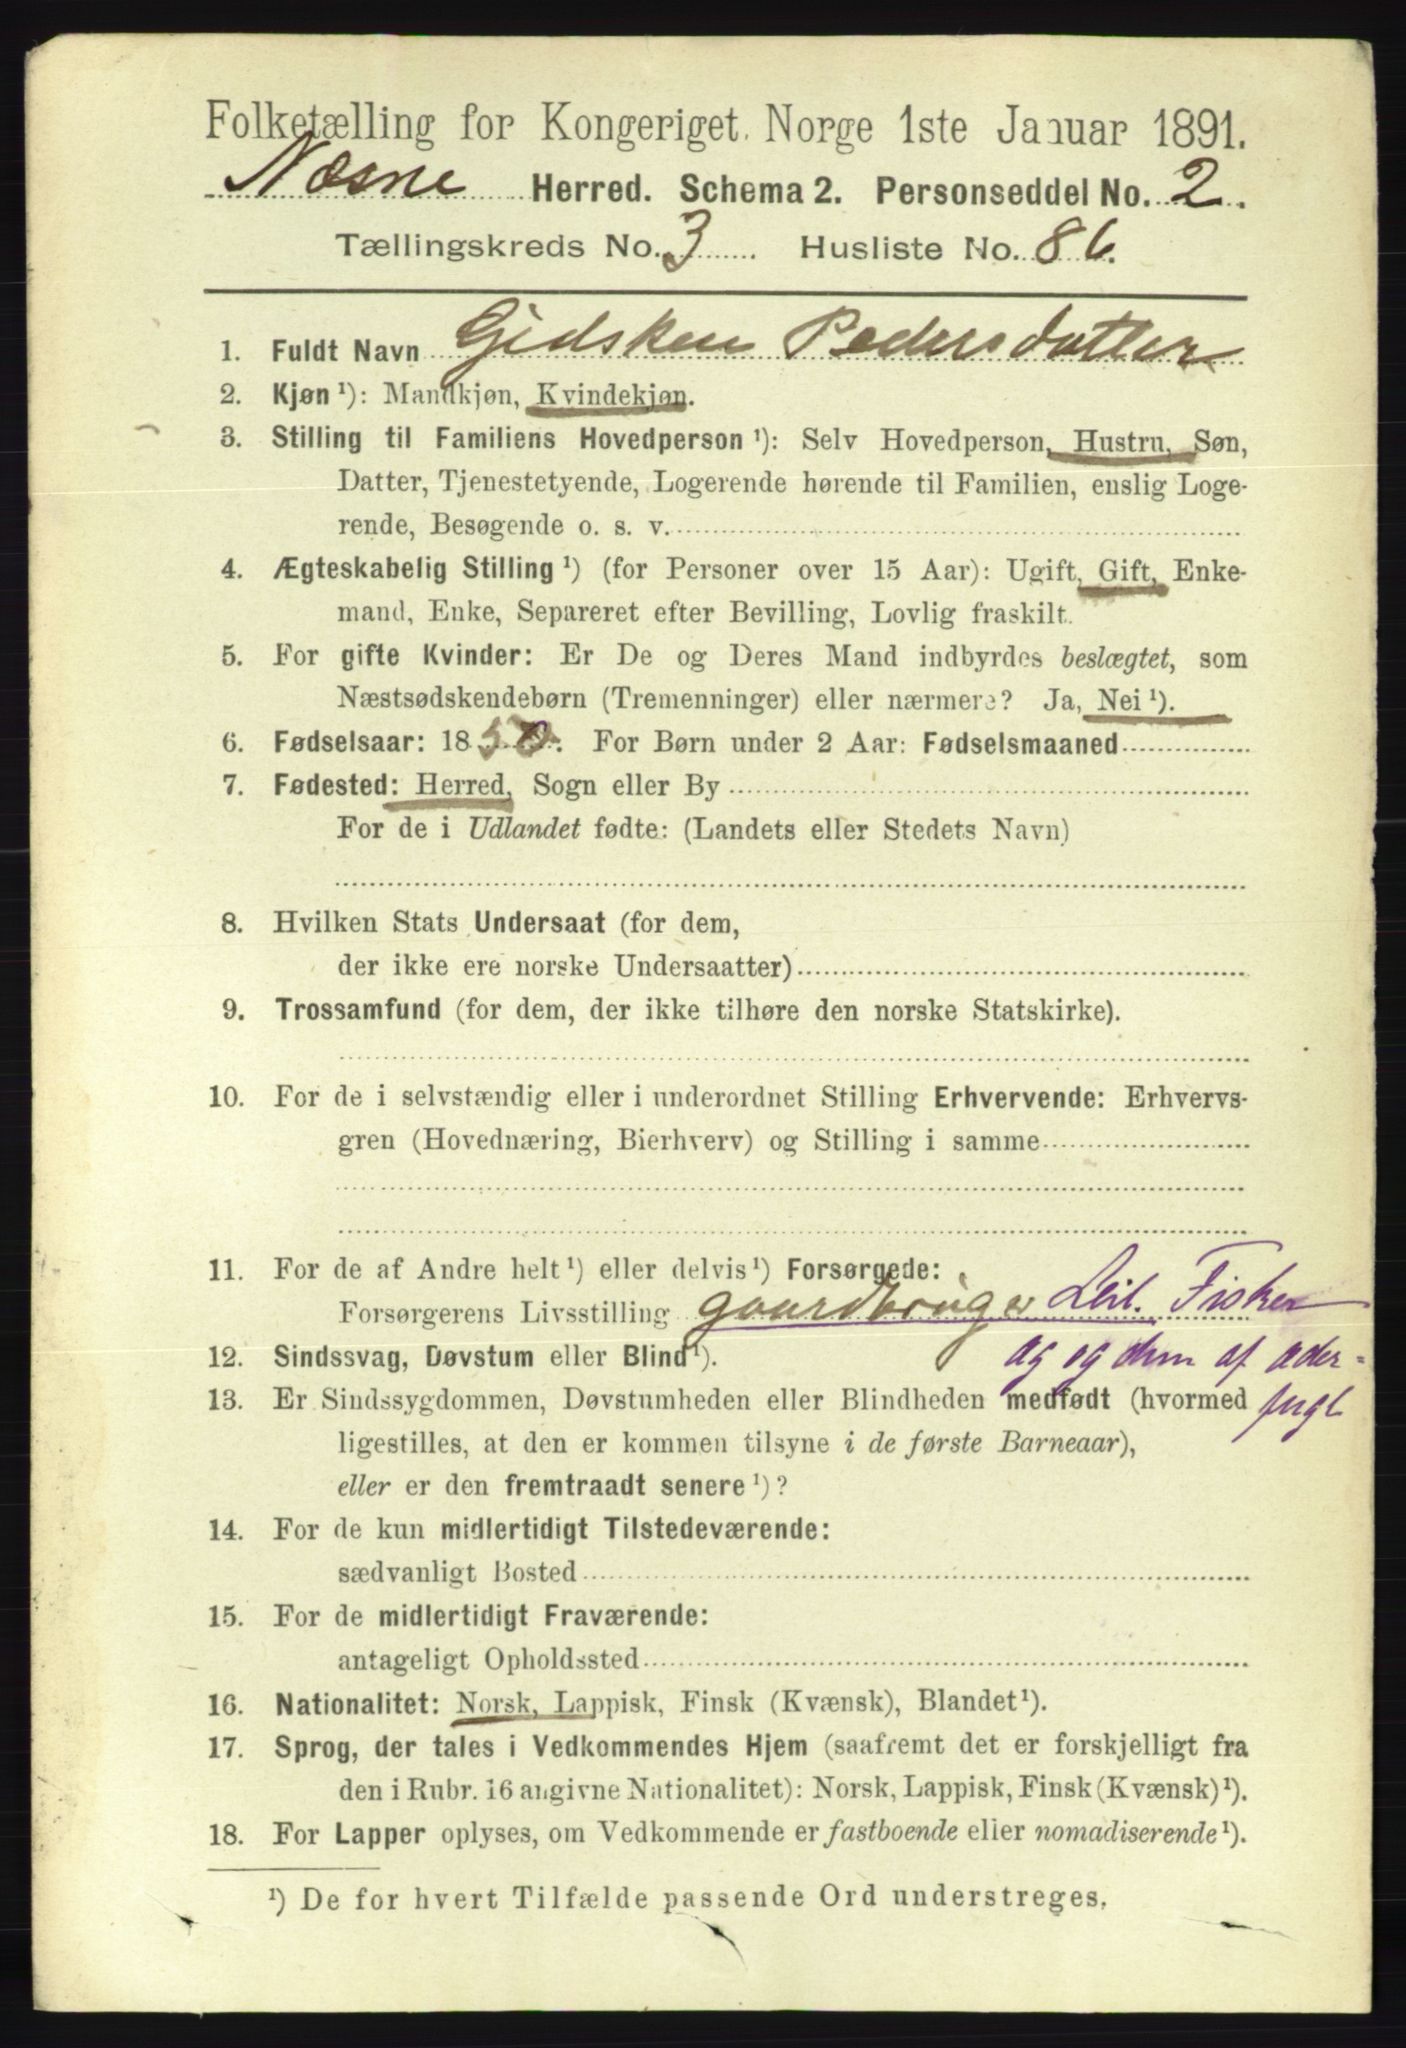 Folketælling for Kongeriget Norge 1ste Januar 1891.
Næsne Herred. Schema 2. Personseddel No. 2.
Tællingskreds No. 3 Husliste No. 86.
1. Fuldt Navn Gidsken Pedersdatter
2. Kjøn ¹): Mandkjøn, Kvindekjøn.
3. Stilling til Familiens Hovedperson ¹): Selv Hovedperson, Hustru, Søn,
Datter, Tjenestetyende, Logerende hørende til Familien, enslig Loge-
rende, Besøgende o. s. v.
4. Ægteskabelig Stilling ¹) (for Personer over 15 Aar): Ugift, Gift, Enke-
mand, Enke, Separeret efter Bevilling, Lovlig fraskilt.
5. For gifte Kvinder: Er De og Deres Mand indbyrdes beslægtet, som
Næstsødskendebørn (Tremenninger) eller nærmere? Ja, Nei ¹).
6. Fødselsaar: 1850. For Børn under 2 Aar: Fødselsmaaned
7. Fødested: Herred, Sogn eller By
For de i Udlandet fødte: (Landets eller Stedets Navn)
8. Hvilken Stats Undersaat (for dem,
der ikke ere norske Undersaatter)
9. Trossamfund (for dem, der ikke tilhøre den norske Statskirke).
10. For de i selvstændig eller i underordnet Stilling Erhvervende: Erhvervs-
gren (Hovednæring, Bierhverv) og Stilling i samme
11. For de af Andre helt ¹) eller delvis ¹) Forsørgede:
Forsørgerens Livsstilling gaardbruger Leil. Fisker
12. Sindssvag, Døvstum eller Blind ¹). ag og dun af æder-
13. Er Sindssygdommen, Døvstumheden eller Blindheden medfødt (hvormed fugl
ligestilles, at den er kommen tilsyne i de første Barneaar),
eller er den fremtraadt senere ¹)?
14. For de kun midlertidigt Tilstedeværende:
sædvanligt Bosted
15. For de midlertidigt Fraværende:
antageligt Opholdssted
16. Nationalitet: Norsk, Lappisk, Finsk (Kvænsk), Blandet ¹).
17. Sprog, der tales i Vedkommendes Hjem (saafremt det er forskjelligt fra
den i Rubr. 16 angivne Nationalitet): Norsk, Lappisk, Finsk (Kvænsk) ¹).
18. For Lapper oplyses, om Vedkommende er fastboende eller nomadiserende ¹).
¹) De for hvert Tilfælde passende Ord understreges.